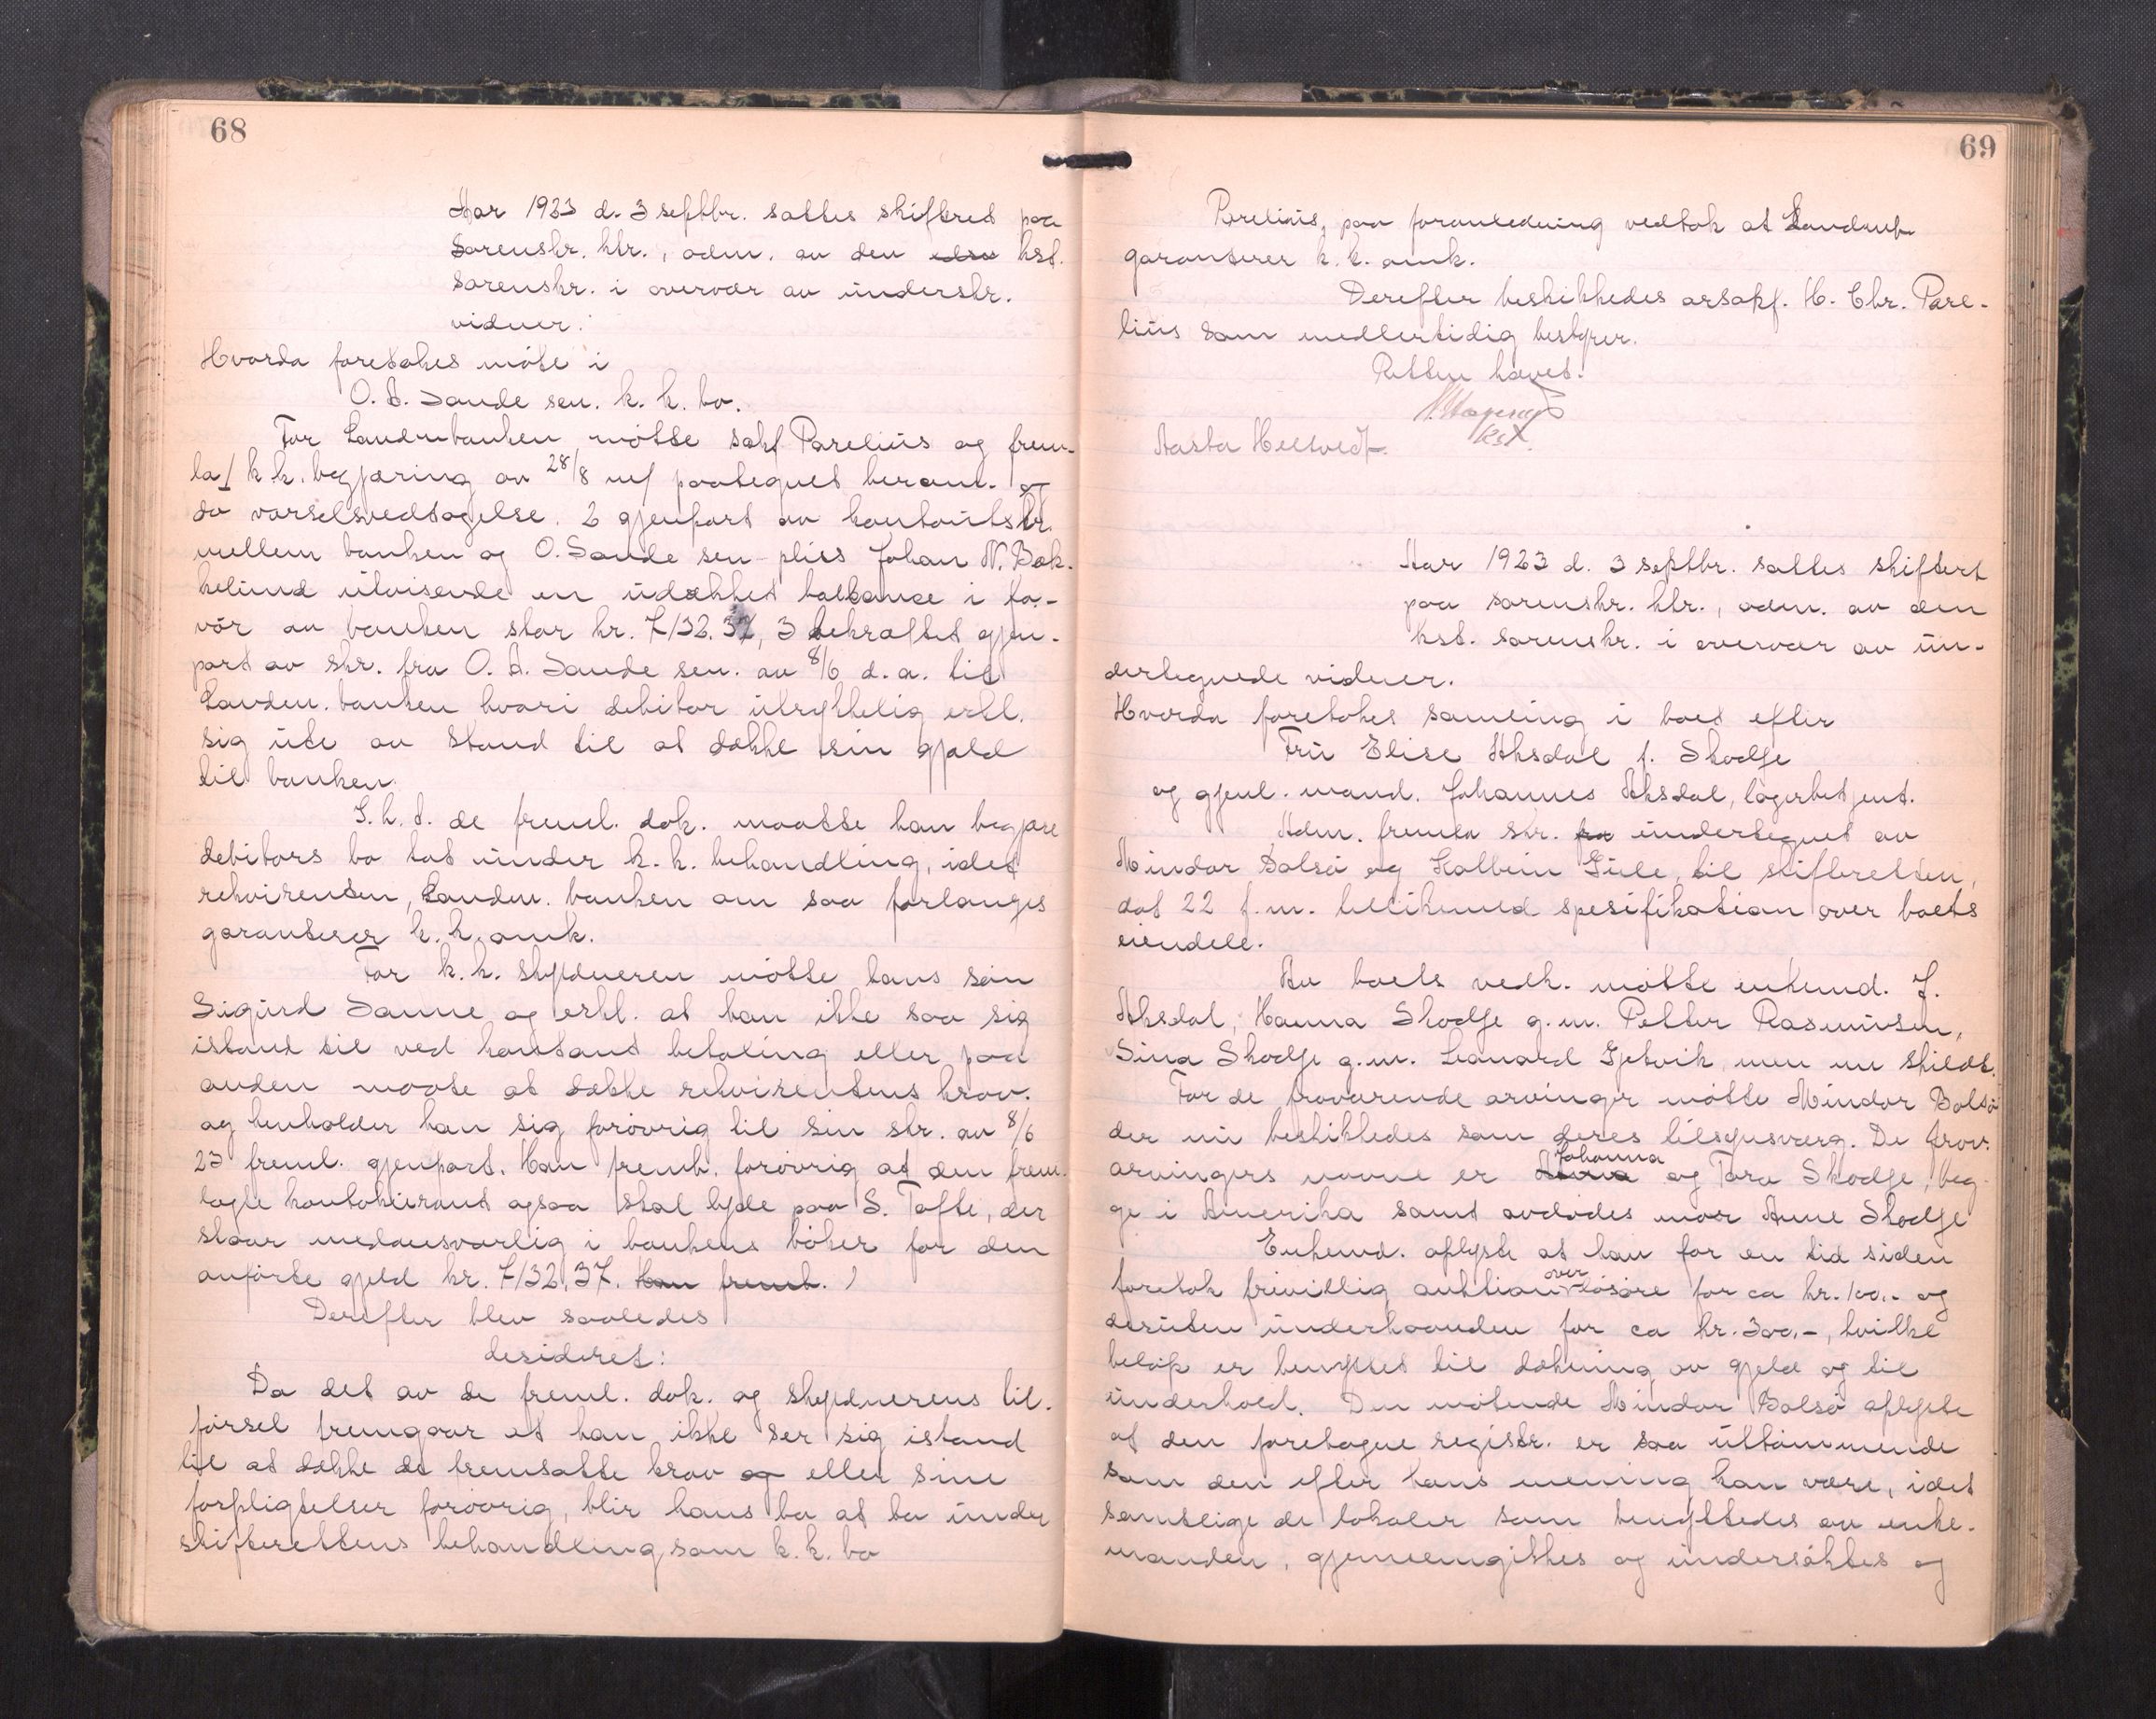 68
Aar 1923 d. 3 septbr. sattes skifteret paa
sorenskr. ktr., adm. av den edsv kst.
sorenskr. i overvær av underskr.
vidner:
Hvorda foretokes møte i
O. A. Sande sen. k. k. bo.
For Landmbanken møtte sakf. Parelius og frem-
la 1 k.k. begjæring av 28/8 m/ paategnet beram. og
do varselsvedtagelse. 2 gjenpart av kontoutskr.
mellem banken og O. Sande sen pliss Johan N. Bak-
kelund utvisende en udækket ballance i fa-
vør av banken stor kr. 7132.37, 3 bekræftet gjen-
part av skr. fra O. A. Sande sen. av 8/6 d. a. til
Landm. banken hvori debitor utrykkelig erkl.
sig ute av stand til at dække sin gjæld
til banken.
I. h. t. de freml. dok. maatte han begjære
debitors bo tat under k. k. behandling, idet
rekvirenten, Landm. banken om saa forlanges
garanterer k. k. omk.
For k. k. skyldneren møtte hans søn
Sigurd Sanne og erkl. at han ikke saa sig
istand til ved kontant betaling eller paa
anden maate at dække rekvirentens krav.
og henholder han sig forøvrig til sin skr. av 8/6
23 freml. gjenpart. Han fremh. forøvrig at den frem-
lagte kontokurant ogsaa skal lyde paa S. Tafte, der
staar medansvarlig i bankens bøker for den
anførte gjeld kr. 7132,37. Han fremh. )
Derefter blev saaledes
desideret:
Da det av de freml. dok. og skyldnerens til-
førsel fremgaar at han ikke ser sig istand
til at dække de fremsatte krav og eller sine
forpligtelser forøvrig, blir hans bo at ta under
skifterettens behandling som k. k. bo
69
Parelius, paa foranledning vedtok at Landmb.
garanterer k. k. omk.
Derefter beskikkedes orsakf. H. Chr. Pare-
lius som midlertidig bestyrer.
Retten hævet.
kst.
Aasta Heltvedt.
Aar 1923 d. 3 septbr. sattes skiftert
paa sorenskr. ktr., adm. av den
kst. sorenskr. i overvær av un-
dertegnede vidner.
Hvorda foretokes samling i boet efter
Fru Elise Aksdal f. Skodje
og gjenl. mand. Johannes Aksdal, lagerbetjent.
Adm. fremla skr. fra undertegnet av
Mindor Bolsø og Kolbein Gule, til skifteretten,
dat 22 f. m. tillikemed spesifikation over boets
eiendele.
Av boets vedk. møtte enkemd. J.
Aksdal, Hanna Skodje g. m. Petter Rasmussen,
Sina Skodje g. m. Leonard Gjelvik, men nu skildt.
For de fraværende arvinger møtte Mindor Bolsø
der nu beskikkedes som deres tilsynsværg. De frav.
arvingers navne er Anna Johanna og Tora Skodje, beg-
ge i Amerika samt avdødes mor Anne Skodje
Enkemd. oplyste at han for en tid siden
foretok frivillig auktion over løsøre for ca kr. 100.- og
desuten underhaanden for ca kr. 300.-, hvilke
beløp er benyttet til dækning av gjeld og til
underhold. Den møtende Mindor Bolsø oplyste
at den foretagne registr. er saa uttømmende
som den efter hans mening kan være, idet
samtlige de lokaler som benyttedes av enke-
manden, gjennemgikkes og undersøktes og